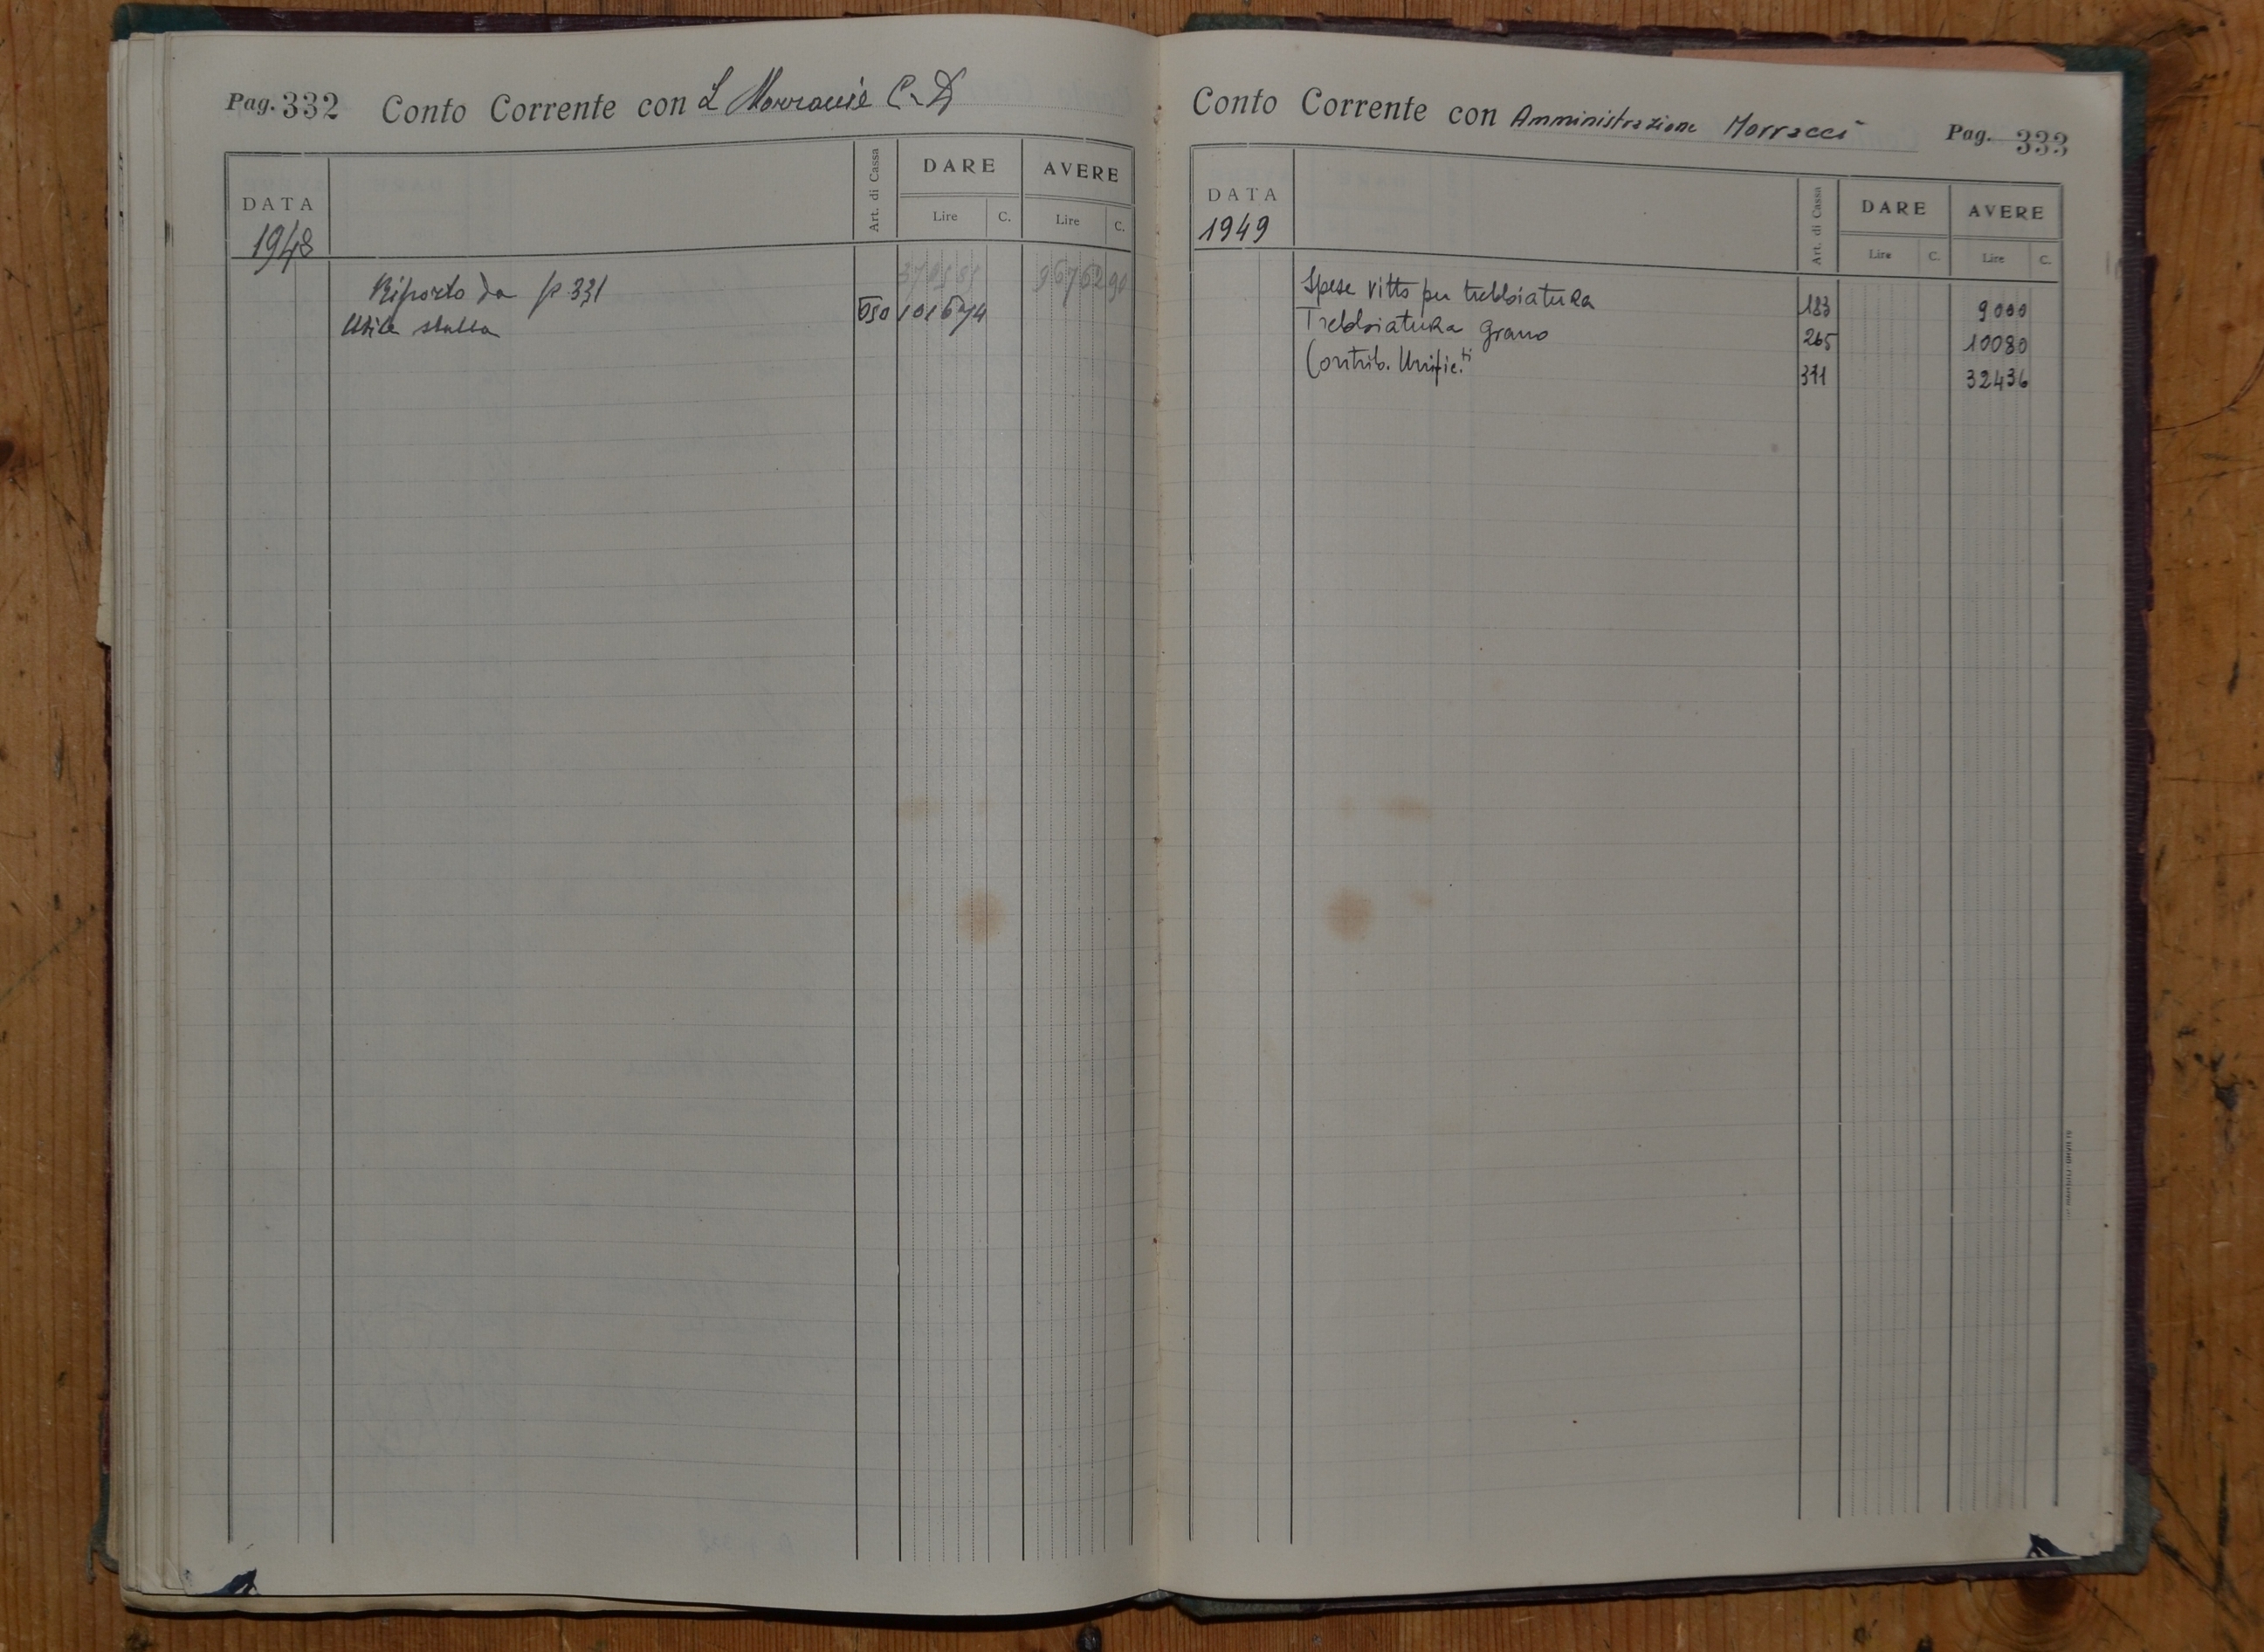 Pag. 332 Conto Corrente con L Morracie C-D
DATA Art. di Cassa DARE AVERE
Lire C. Lire C.
1948
Riporto da p 331
Utile stalla 550 101674
Conto Corrente con Amministrazione Morracci Pag. 333
DATA Art. di Cassa DARE AVERE
Lire C. Lire C.
1949
Spese vitto per trebbiatura 183 9000
Trebbiatura grano 265 10080
Contrib. Unific.ti 311 32436